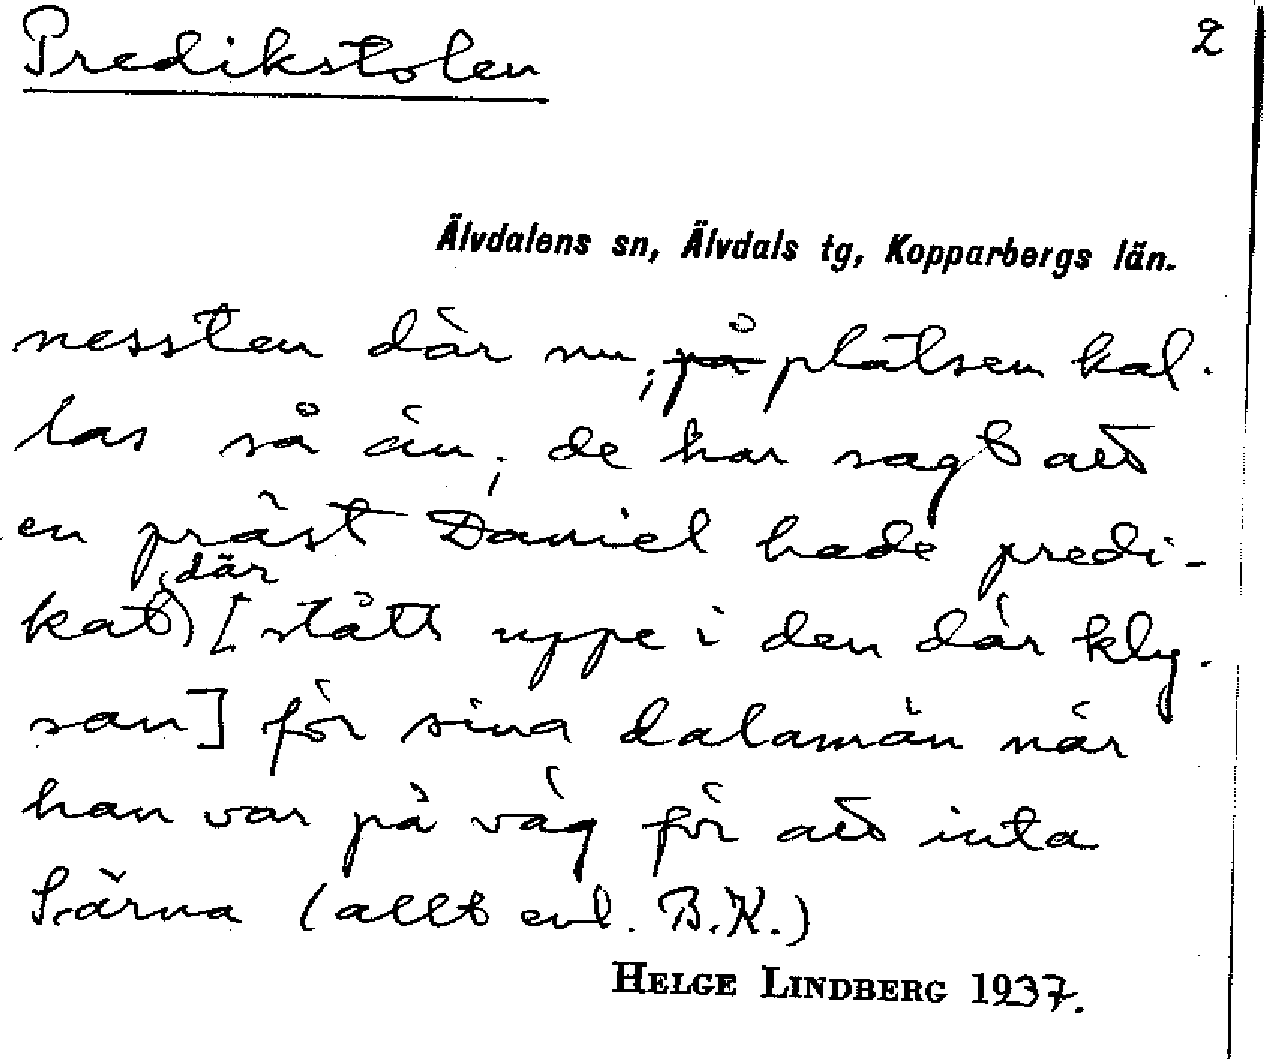 Predikstolen 2
Älvdalens sn, Älvdals tg, Kopparbergs län.
nessten där nu; på platsen kal-
las så än; de har sagt att
en präst Daniel hade predi-
kat) där [stått uppe i den där kly-
san] för sina dalamän när
han var på väg för att inta
Särna (allt enl. B.K.)
HELGE LINDBERG 1937.